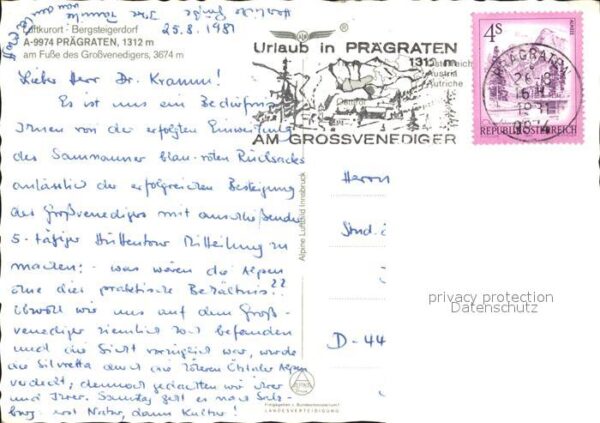 25.8.1981
Luftkurort - Bergsteigerdorf
A-9974 PRÄGRATEN, 1312 m
am Fuße des Großvenedigers, 3674 m
Lieber Herr Dr. Kramm!
Es ist uns ein Bedürfnis
Ihnen von der erfolgten Einweihung
des Samnauner blau-roten Rucksacks
anlässlich der erfolgreichen Besteigung
des Großvenedigers mit anschließender
5-tägiger Hüttentour Mitteilung zu
machen: - was wären die Alpen
ohne dies praktische Behältnis??
Obwohl wir uns auf dem Groß-
venediger ziemlich hoch befanden
und die Sicht vorzüglich war, wurde
die Silvretta durch die höheren Ötztaler Alpen
verdeckt; dennoch gedachten wir ihrer
und Ihrer. Samstag geht es nach Salz-
burg - erst Natur, dann Kultur!
Herzliche Grüße
Ihre Familie
Alpine Luftbild Innsbruck
Urlaub in PRÄGRATEN
1312 m
Austria
Autriche
AM GROSSVENEDIGER
4S
REPUBLIK ÖSTERREICH
PRÄGRATEN
1981
9974
Herrn
D-44
privacy protection
Datenschutz
LANDESVERTEIDIGUNG